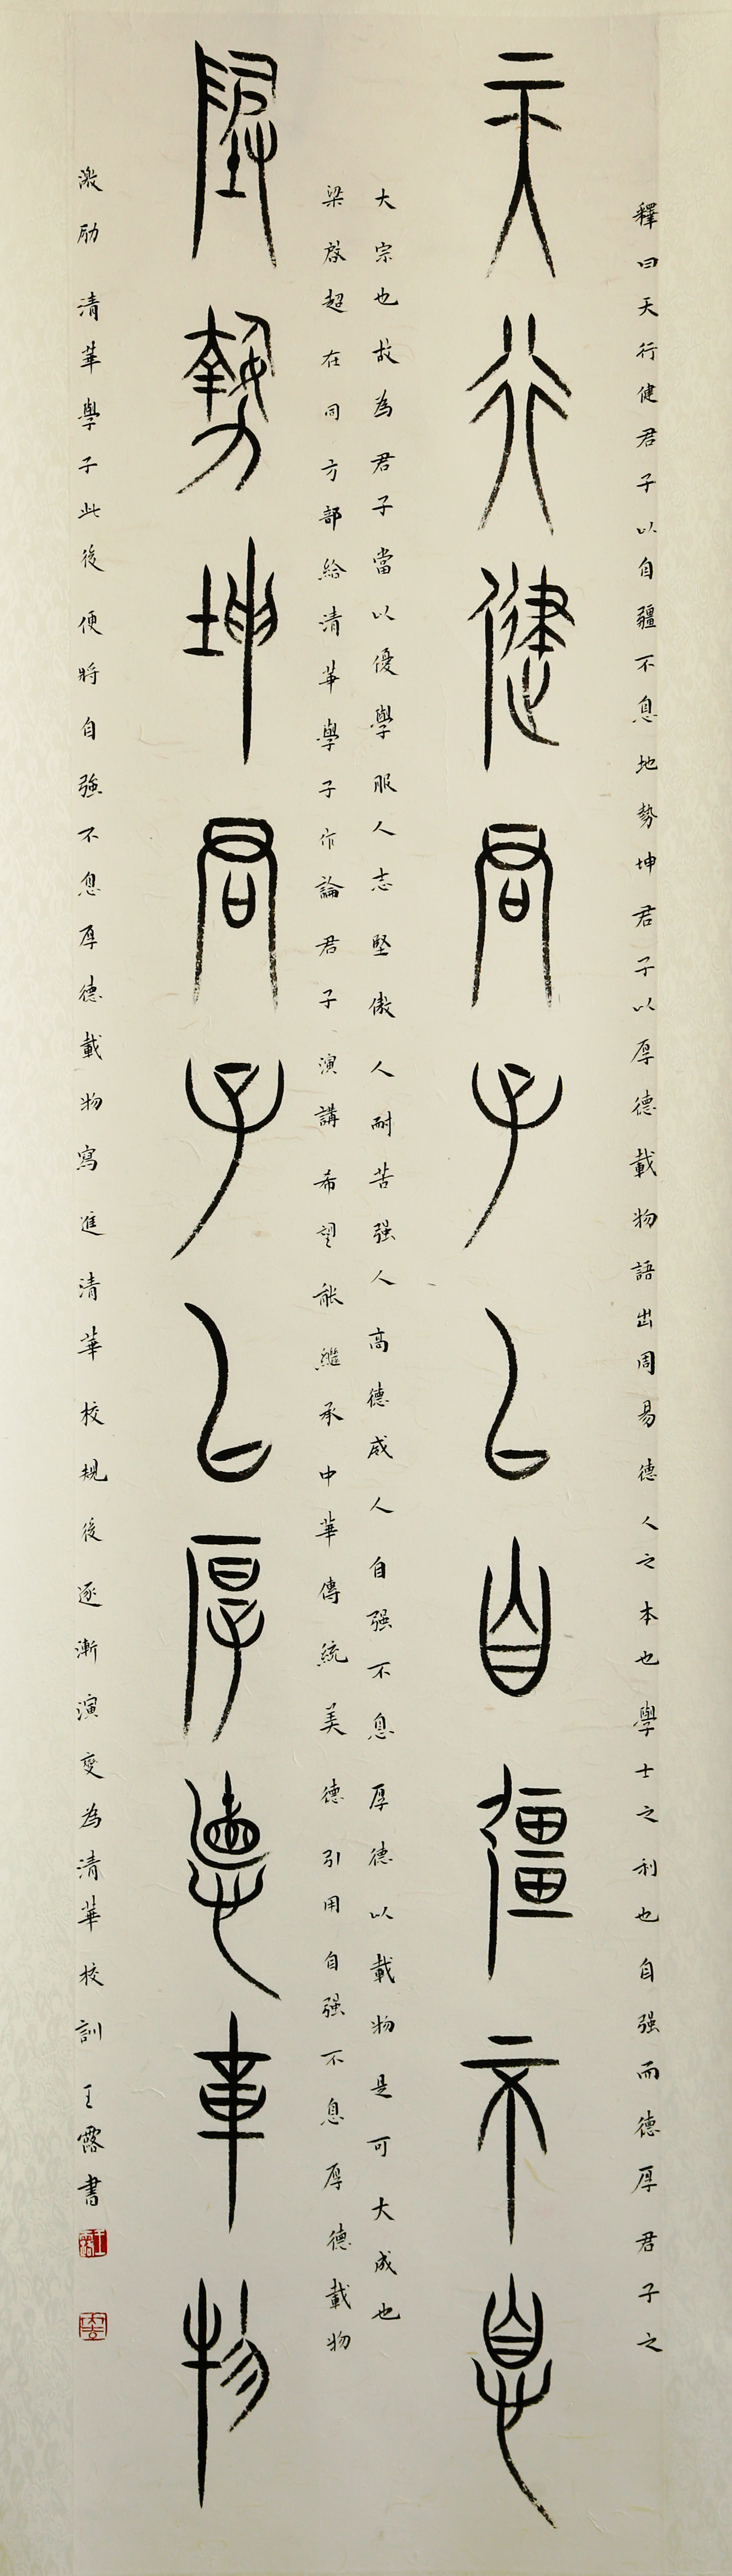 釋曰天行健君子以自彊不息地勢坤君子以厚德載物語出周易德人之本也學士之利也自强而德厚君子之
天行健君子以自彊不息
大宗也故為君子當以優學服人志堅傲人耐苦强人高德感人自强不息厚德以載物是可大成也
梁啓超在同方部給清華學子作論君子演講希望能繼承中華傳統美德引用自强不息厚德載物
地勢坤君子以厚德載物
激励清華學子此後便將自強不息厚德載物寫進清華校規後逐漸演變為清華校訓王露書